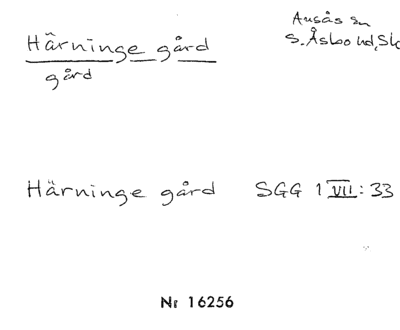 Härninge gård
gård
Ausås sn
S. Åsbo hd, Sk
Härninge gård SGG 1 VII: 33
Nr 16256